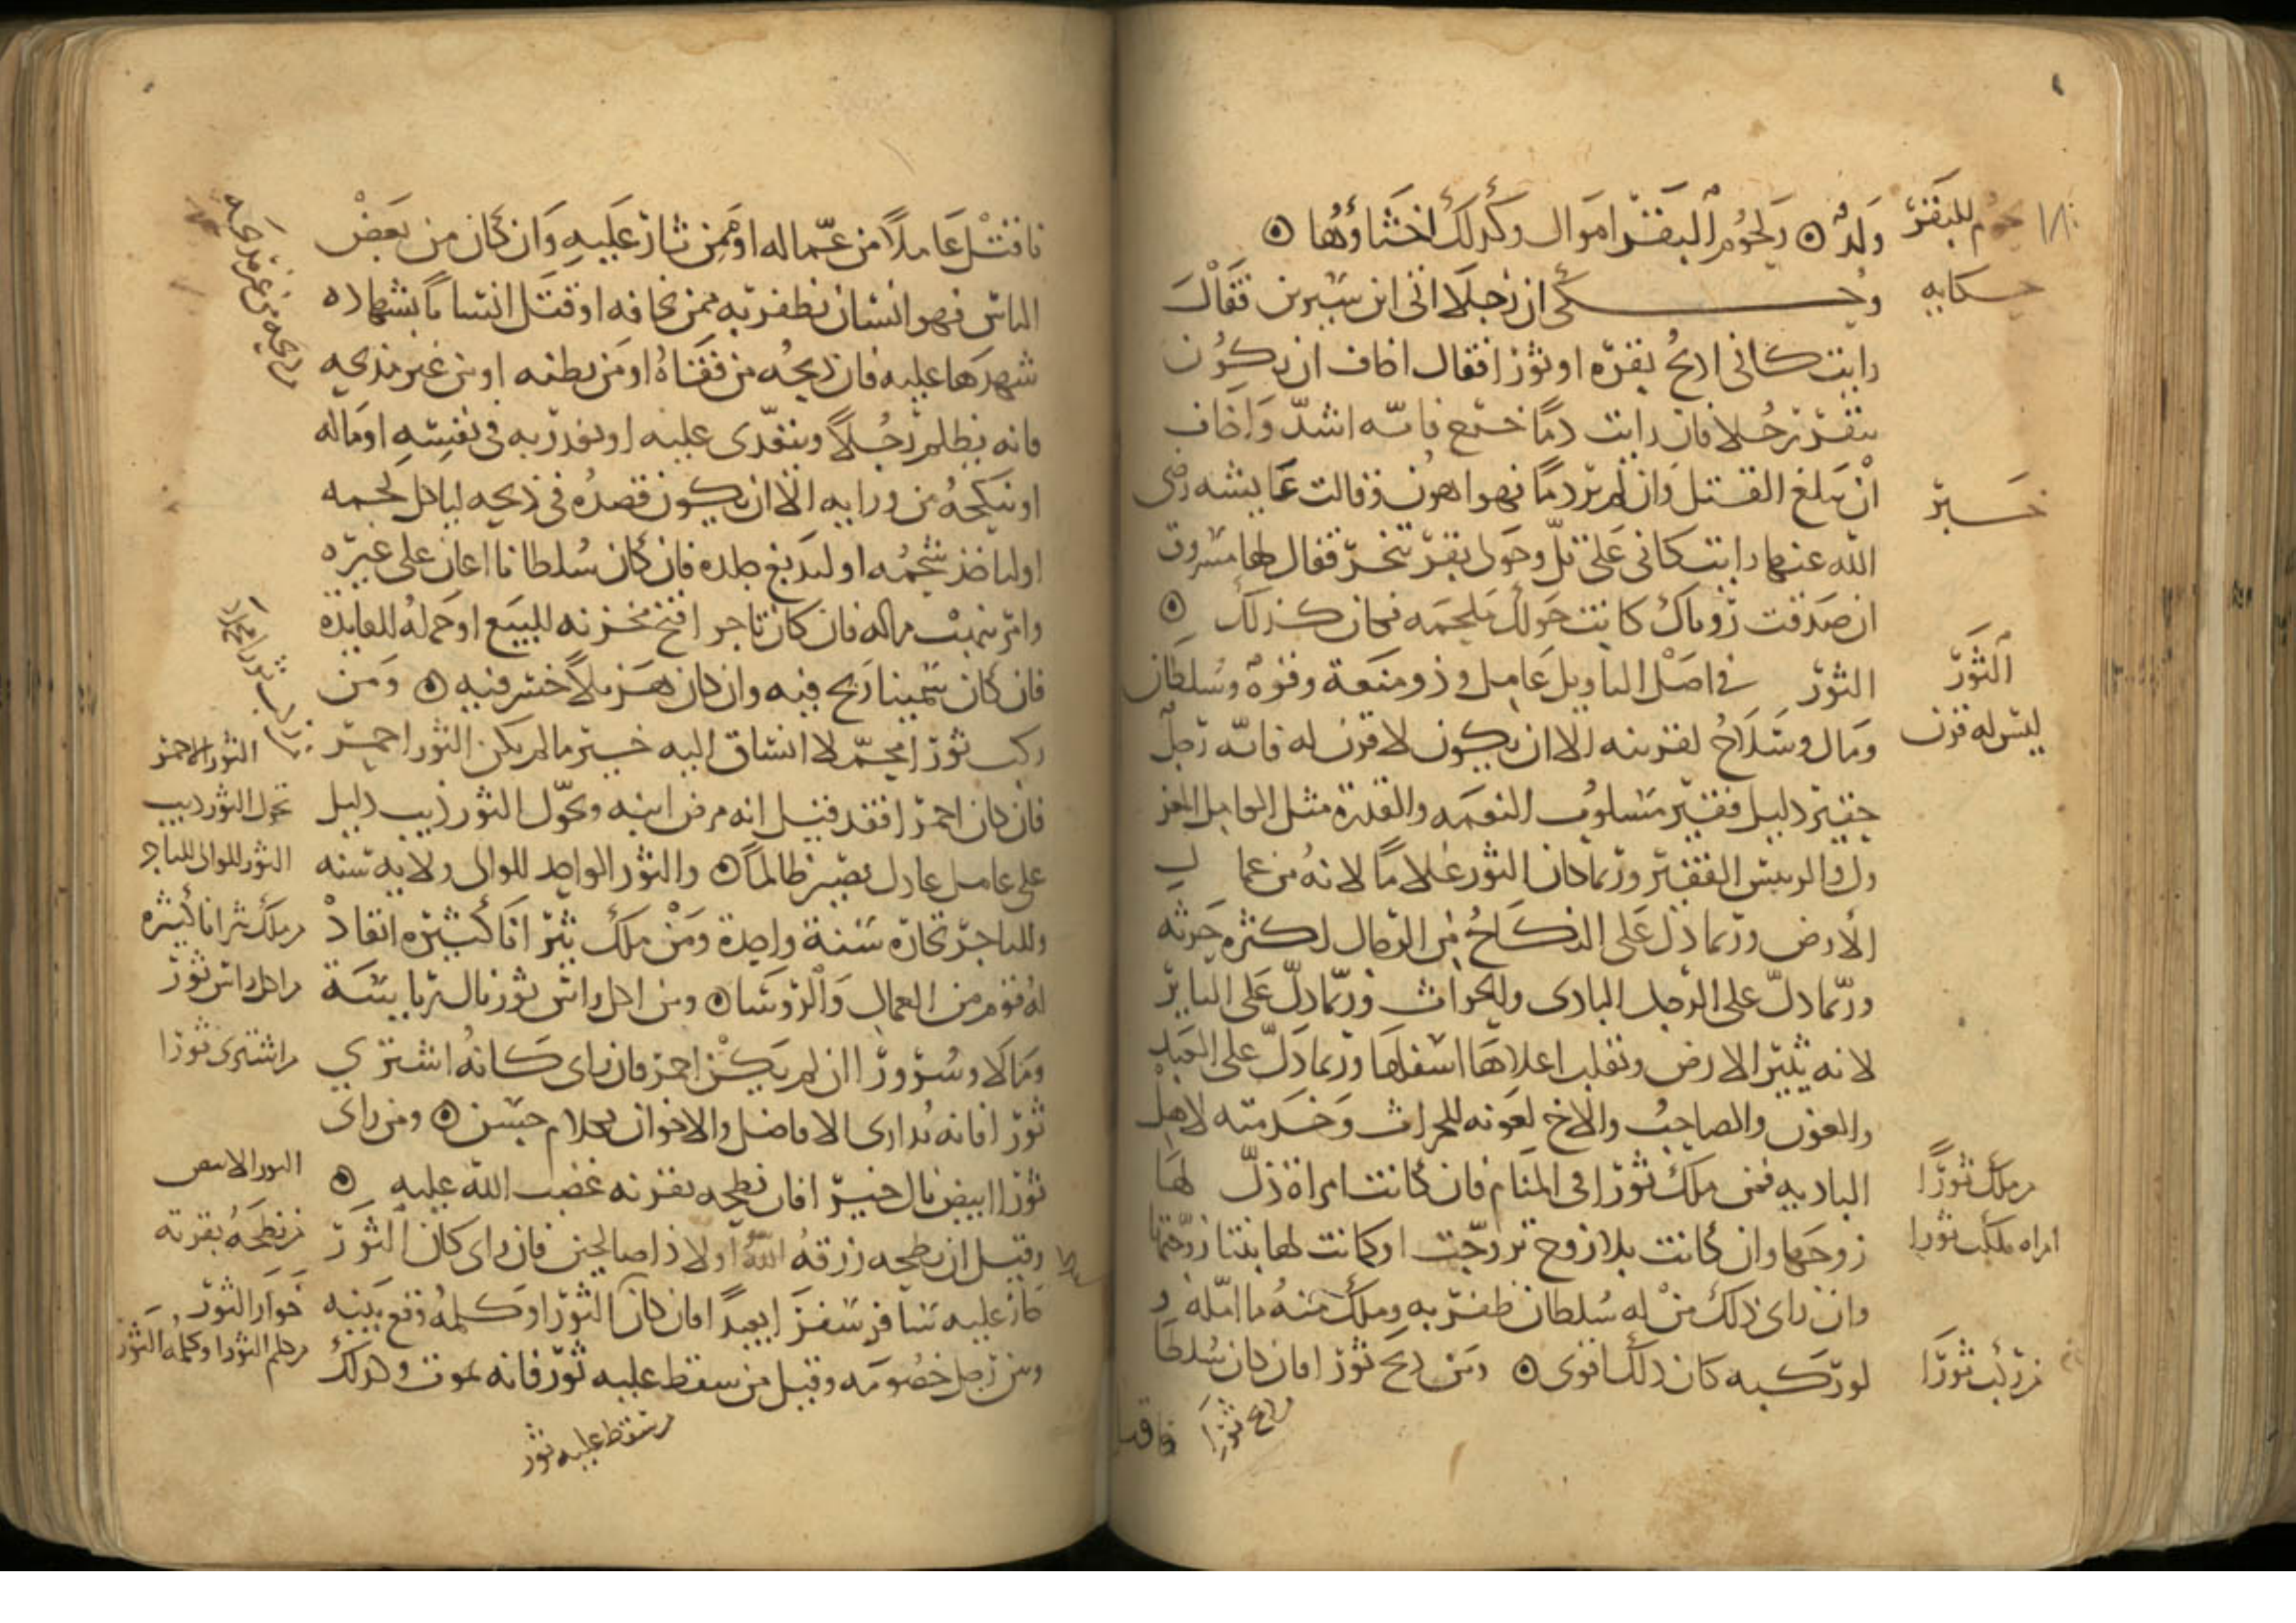 لحوم البقر
ولد ۞ ولحوم البقر اموال وكذلك اخثاؤها ۞
حكايه
وحكى ان رجلا اتى ابن سيرين فقال
رايت كانى اذبح بقره او ثورا فقال اخاف ان يكون
يبقر رجلا فان رايت دما خرج فانه اشد واخاف
خبر
ان يبلغ القتل وان لم ير دما فهو اهون وقالت عايشه رضى
الله عنها رايت كانى على تل وحولى بقر تنحر فقال لها مسروق
ان صدقت روياك كانت حولك ملحمه فكان كذلك ۞
الثور
الثور فى اصل التاويل عامل وذو منعة وقوه وسلطان
ليس له قرن
ومال وسلاح لقرنيه الا ان يكون لا قرن له فانه رجل
حقير ذليل فقير مسلوب النعمه والقدرة مثل العامل المعز
ول والرييس الفقير وربما كان الثور غلاما لانه من عما ل
الارض وربما دل على النكاح من الرجال لكثره حرثه
وربما دل على الرجل البادى والحراث وربما دل على الثاير
لانه يثير الارض ويقلب اعلاها اسفلها وربما دل على العبد
والعون والصاحب والاخ لعونه للحراث وخدمته لاهل
من ملك ثورا
الباديه فمن ملك ثورا فى المنام فان كانت امراة ذل لها
امراه ملكت ثورا
زوجها وان كانت بلا زوج تزوجت او كانت لها بنتا زوجتها
وان راى ذلك من له سلطان ظفر به وملك منه ما امله و
من ركب ثورا
لو ركبه كان ذلك اقوى ۞ ومن ذبح ثورا فان كان سلطا
من ذبح ثورا
فاقتل
نا قتل عاملا من عماله او ممن ثار عليه وان كان من بعض
الناس فهو انسان يظفر به ممن يخافه او قتل انسانا بشهاده
شهدها عليه فان ذبحه من قفاه او من بطنه او من غير مذبحه
من ذبحه من غير مذبحه
فانه يظلم رجلا ويتعدى عليه او يغدر به فى نفسه او ماله
او ينكحه من ورايه الا ان يكون قصده فى ذبحه لياكل لحمه
او لياخذ شحمه او ليدبغ جلده فان كان سلطانا اعان على غيره
وامر بنهب ماله فان كان تاجر افتح مخزنه للبيع او حمله للفايدة
فان كان سمينا ربح فيه وان كان هزيلا خسر فيه ۞ ومن
ركب ثورا محملا انساق اليه خير ما لم يكن الثور احمر
الثور الاحمر
فان كان احمر فقد قيل انه مرض ابنه وتحول الثور ذيب دليل
تحول الثور ذيب
على عامل عادل يصير ظالما ۞ والثور الواحد للوالى ولايه سنه
الثور للوالى للتاجر
وللتاجر تجارة سنة واحدة ومن ملك ثيرانا كثيره انقاد
من ملك ثيرانا كثيره
له قوم من العمال والروسا ۞ ومن اكل راس ثور نال رياسة
من اكل راس ثور
ومالا وسرورا ان لم يكن احمر فان راى كانه اشترى
من اشترى ثورا
ثورا فانه يدارى الافاضل والاخوان بكلام حسن ۞ ومن راى
ثورا ابيض نال خيرا فان نطحه بقرنه غضب الله عليه ۞
الثور الابيض
وقيل ان نطحه رزقه الله اولاذا صالحين فان راى كان الثور
من نطحه بقرنه
خار عليه سافر سفرا بعيدا فان كان الثور او كلمه وقع بينه
خوار الثور
وبين رجل خصومه وقيل من سقط عليه ثور فانه يموت وكذلك
من كلم الثور او كلمه الثور
من سقط عليه ثور